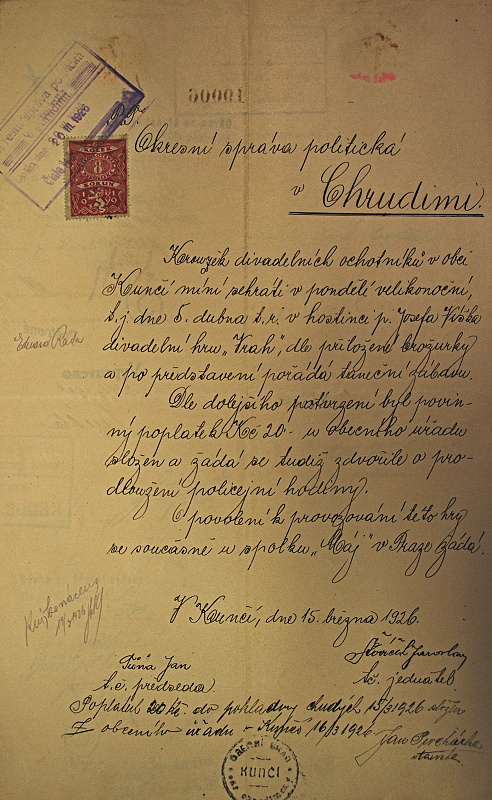 20 III 1926
KOLEK
8
KORUN
P.T.
Okresní správa politická
v Chrudimi.
Kroužek divadelních ochotníků v obci
Kunčí míní sehráti v pondělí velikonoční,
t.j. dne 5. dubna t.r. v hostinci p. Josefa Víška
divadelní hru „Vrah", dle přiložené brožurky
a po představení pořádá taneční zábavu.
Eduard Rada
Dle dolejšího potvrzení byl povin-
ný poplatek Kč 20·- u obecního úřadu
složen a žádá se tudíž zdvořile o pro-
dloužení policejní hodiny.
O povolení k provozování této hry
se současně u spolku „Máj" v Praze žádá.
V Kunčí, dne 15. března 1926.
Jaroslav
t.č. jednatel
Tůňa Jan
t.č. předseda.
Poplatek 20 Kč do pokladny chudých 15/3 1926 složen
Z obecního úřadu v Kunčí 16/3 1926
Jan
starosta
OBECNÍ ÚŘAD
KUNČÍ